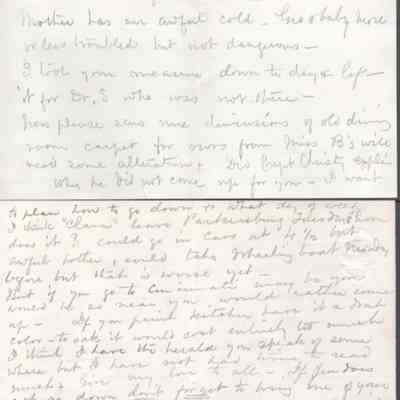 Mother has an awful cold - Geo & baby more
or less troubled but not dangerous -
I took your measure down to day & left
it for Dr. S who was not there -
Now please send me dimensions of old dining
room carpet for ours from Miss B's will
need some alteration & Did Capt Christy explain
why he did not come up for you - I want
to plan how to go down & what day of week
I think "Clara" leaves Parkersburg
does it? could go in cars at 4 1/2 but
awful bother, could take Wheeling boat Monday
before but that is worse yet -
But if you go to Cincinnati may be you
would be so near you would rather come
up - If you paint kitchen have it a drab
color - to oak it would cost entirely too much
I think I have the herald you speak of some
where but I have not had time to read
much & give my love to all - If Jen does
down don't forget to bring one of your